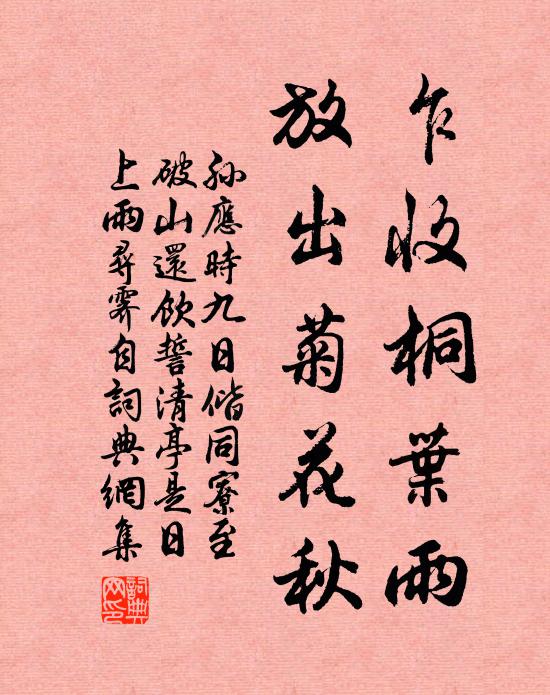 乍收桐葉雨
放出菊花秋
孫應時九日偕同寮至
破山還飲誓清亭是日
上雨尋霽自詞典網集
詞典网印